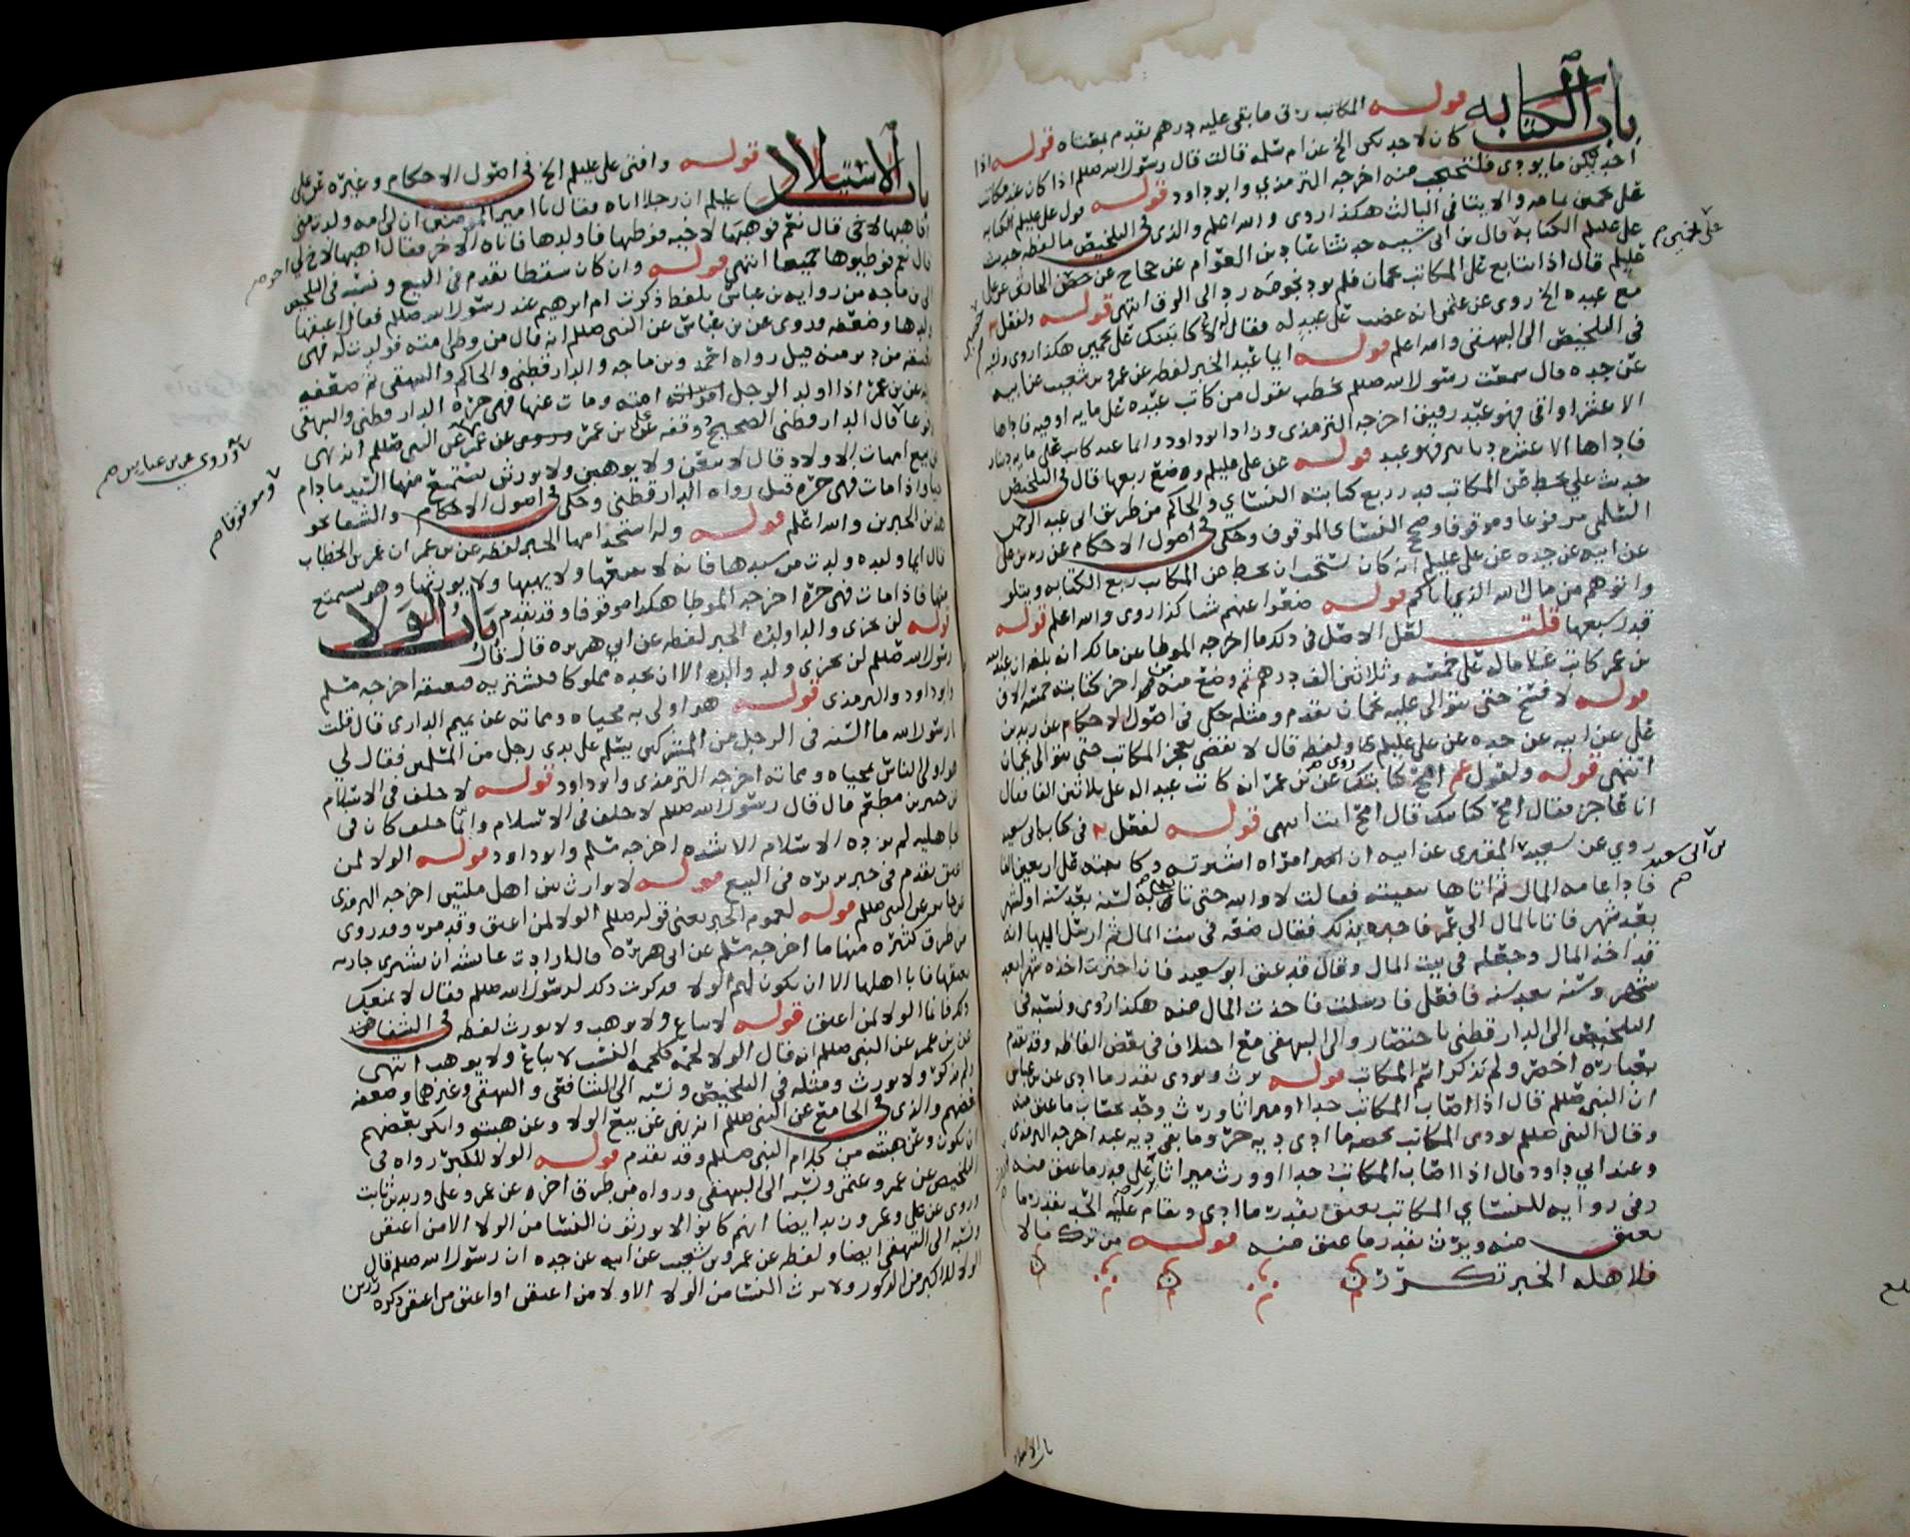 باب الكتابه قوله المكاتب رق ما بقى عليه درهم تقدم بمعناه قوله اذا
كان لاحديكن الخ عن ام سلمه قالت قال رسول الله صللم اذا كان عند مكاتب
احديكن ما يودى فلتحتجب منه اخرجه الترمذي وابو داود قوله قول علي عليلم الكتابه
على نجمين والايتا فى الثالث هكذا روى والله اعلم والذي فى التلخيص ما لفظه حديث
على عليلم الكتابه قال بن ابى شيبه حدثنا عباد بن العوام عن حجاج عن حصين الحارثى عن على
عليلم قال اذا تتابع على المكاتب نجمان فلم يود نجومه رد الى الرق انتهى قوله ولفعل
مع عبده الخ روى عن عثمن انه غضب على عبد له فقال لاكاتبنك على نجمين هكذا روى
فى التلخيص الى البيهقى والله اعلم قوله ايما عبد الخبر لفظه عن عمرو بن شعيب عن ابيه
عن جده قال سمعت رسول الله صللم يخطب يقول من كاتب عبده على مايه اوقيه فاداها
الا عشر اواقى فهو عبد رقيق اخرجه الترمذى وزاد ابو داود وايما عبد كاتب على مايه دينار
فاداها الا عشره دنانير فهو عبد قوله عن على عليلم وضع ربعها قال فى التلخيص
حديث علي يحط عن المكاتب قدر ربع كتابته النسائي والحاكم من طريق ابى عبد الرحمن
السلمى مرفوعا وموقوفا وصحح النسائى الموقوف وحكى فى اصول الاحكام عن زيد بن على
عن ابيه عن جده عن على عليلم انه كان يستحب ان يحط عن المكاتب ربع الكتابه ويتلو
واتوهم من مال الله الذي اتاكم قوله ضعوا عنهم شيا كذا روى والله اعلم قوله
قدر سبعها قلت لعل الاصل فى ذلك ما اخرجه الموطا عن مالك انه بلغه ان عبد الله
بن عمر كاتب غلاما له على خمسه وثلاثين الف درهم ثم وضع منه من اخر كتابته خمسة الاف
قوله لا فسخ حتى يتوالى عليه نجمان تقدم ومثله حكى فى اصول الاحكام عن زيد بن
على عن ابيه عن جده عن على عليلم ولفظه قال لا يقضى بعجز المكاتب حتى يتوالى نجمان
انتهى قوله ولقول عم امح كتابتك روى عن بن عمر انه كاتب عبدا له على ثلاثين الفا فقال
انا عاجز فقال امح كتابتك قال امح انت انتهى قوله لفعل فى كتاب ابى سعيد
روي عن سعيد المقبرى عن ابيه ان امراه اشترته وكاتبته على اربعين الفا
فادا عامه المال ثم اتاها ببقيته فقالت لا والله حتى تاتى سنه بعد سنه او شهر
بعد شهر فاتا بالمال الى عمر فاخبره بذلك فقال ضعه فى بيت المال ثم ارسل اليها انه
قد اخذ المال وجعله فى بيت المال وقال قد عتق ابو سعيد فان اخترت اخذه شهرا بعد
شهر وسنه بعد سنه فافعلى فارسلت فاخذت المال منه هكذا روى ونسبه فى
التلخيص الى الدارقطنى باختصار والى البيهقى مع اختلاف فى بعض الفاظه وقد تقدم
بعباره اخصر ولم تذكر اسم المكاتب قوله يرث ويودى بقدر ما ادى عن بن عباس
ان النبى صللم قال اذا اصاب المكاتب حدا او ميراثا ورث وحد بحساب ما عتق منه
وقال النبى صللم يودى المكاتب بحصه ما ادى ديه حر وما بقى ديه عبد اخرجه الترمذى
وعند ابي داود قال اذا اصاب المكاتب حدا او ورث ميراثا على قدر ما عتق منه
وفى روايه للنسائي المكاتب يعتق بقدر ما ادى ويقام عليه الحد بقدر ما
يعتق منه ويرث بقدر ما عتق منه قوله من ترك مالا
فلاهله الخبر تكرر
بن ابى سعيد
باب الاستيلاد قوله وافتى على عليلم الخ فى اصول الاحكام وغيره عن على
عليلم ان رجلا اتاه فقال يا امير المومنين ان لى امه ولدت منى
افاهبها لاخى قال نعم فوهبها لاخيه فوطيها فاولدها فاتاه الاخر فقال اهبها لاخ لي
قال نعم فوطيوها جميعا انتهى قوله وان كان سقطا تقدم فى البيع ونسبه فى التلخيص
الى بن ماجه من روايه بن عباس بلفظ ذكرت ام ابرهيم عند رسول الله صللم فقال اعتقها
ولدها وضعفه وروى عن بن عباس عن النبى صللم انه قال من وطى امته فولدت له فهى
معتقه عن دبر منه قيل رواه احمد وبن ماجه والدارقطنى والحاكم والبيهقى ثم ضعفه
وعن بن عمر اذا اولد الرجل امته ومات عنها فهى حره الدارقطنى والبيهقى
مرفوعا قال الدارقطنى الصحيح وقفه على بن عمر عن عمر عن النبى صللم انه نهى
عن بيع امهات الاولاد قال لا يبعن ولا يوهبن ولا يورثن يستمتع منها السيد مادام
حيا واذا مات فهى حره قيل رواه الدارقطنى وحكى فى اصول الاحكام والشفا نحو
هذين الخبرين والله اعلم قوله وله استخدامها الخبر لفظه عن بن عمر ان عمر بن الخطاب
قال ايما وليده ولدت من سيدها فانه لا يبيعها ولا يهبها ولا يورثها وهو يستمتع
منها فاذا مات فهى حره اخرجه الموطا هكذا موقوفا وقد تقدم باب الولا
قوله لن يجزى والدا ولده الخبر لفظه عن ابي هريره قال قال
رسول الله صللم لن يجزى ولد والده الا ان يجده مملوكا فيشتريه فيعتقه اخرجه مسلم
وابو داود والترمذى قوله هو اولى به محياه ومماته عن تميم الدارى قال قلت
يا رسول الله ما السنه فى الرجل من المشركين يسلم على يدى رجل من المسلمين فقال لي
هو اولى الناس بمحياه ومماته اخرجه الترمذى وابو داود قوله لا حلف فى الاسلام
عن جبير بن مطعم قال قال رسول الله صللم لا حلف فى الاسلام وايما حلف كان فى
الجاهليه لم يزده الاسلام الا شده اخرجه مسلم وابو داود قوله الولا لمن
اعتق تقدم فى خبر بريره فى البيع قوله لا توارث بين اهل ملتين اخرجه الترمذى
عن جابر عن النبى صللم قوله لعموم الخبر يعنى قوله صللم الولا لمن اعتق وقد مر وقد روى
من طرق كثيره منها ما اخرجه مسلم عن ابى هريره قال ارادت عائشه ان تشترى جاريه
تعتقها فابا اهلها الا ان يكون لهم الولا فذكرت ذلك لرسول الله صللم فقال لا يمنعك
ذلك فانما الولا لمن اعتق قوله لا يباع ولا يوهب ولا يورث لفظه فى الشفا
عن بن عمر عن النبى صللم انه قال الولا لحمه كلحمه النسب لا يباع ولا يوهب انتهى
ولم يذكر ولا يورث ومثله فى التلخيص ونسبه الى الشافعى والبيهقى وغيرهما وضعفه
بعضهم والذى فى الجامع عن النبى صللم انه نهى عن بيع الولا وعن هبته وانكر بعضهم
ان يكون وعن هبته من كلام النبى صللم وقد تقدم قوله الولا للكبر رواه فى
التلخيص عن عمر وعثمن ونسبه الى البيهقى ورواه من طرق اخره عن عمر وعلى وزيد بن ثابت
وروى عن على وعمر وزيد ايضا انهم كانوا لا يورثون النسا من الولا الا من اعتقن
ونسبه الى البيهقى ايضا ولفظه عن عمرو بن شعيب عن ابيه عن جده ان رسول الله صللم قال
الولا للاكبر من الذكور ولا يرث النسا من الولا الا ولا من اعتقن او اعتق من اعتقن ذكره رزين
وروى عن بن عباس
وموقوفا
باب الاستيلاد